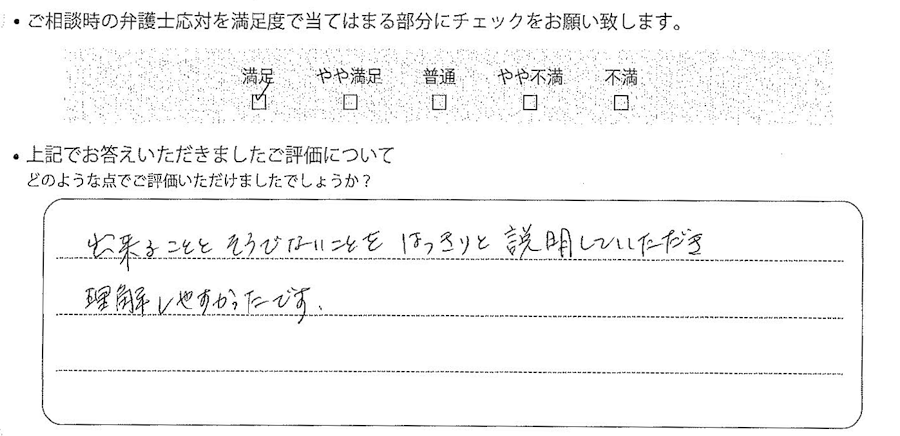 • ご相談時の弁護士応対を満足度で当てはまる部分にチェックをお願い致します。
満足 やや満足 普通 やや不満 不満
☑ □ □ □ □
• 上記でお答えいただきましたご評価について
どのような点でご評価いただけましたでしょうか？
出来ることとそうでないことをはっきりと説明していただき
理解しやすかったです。